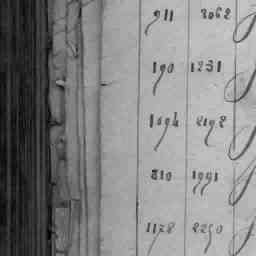 911 2062
190 1231
1094 2192
810 1991
1178 2250